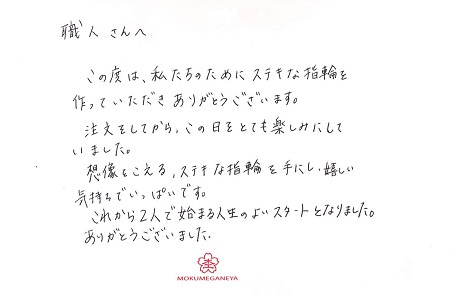 職人さんへ
この度は、私たちのためにステキな指輪を
作っていただきありがとうございます。
注文をしてから、この日をとても楽しみにして
いました。
想像をこえる、ステキな指輪を手にし、嬉しい
気持ちでいっぱいです。
これから2人で始まる人生のよいスタートとなりました。
ありがとうございました。
MOKUMEGANEYA